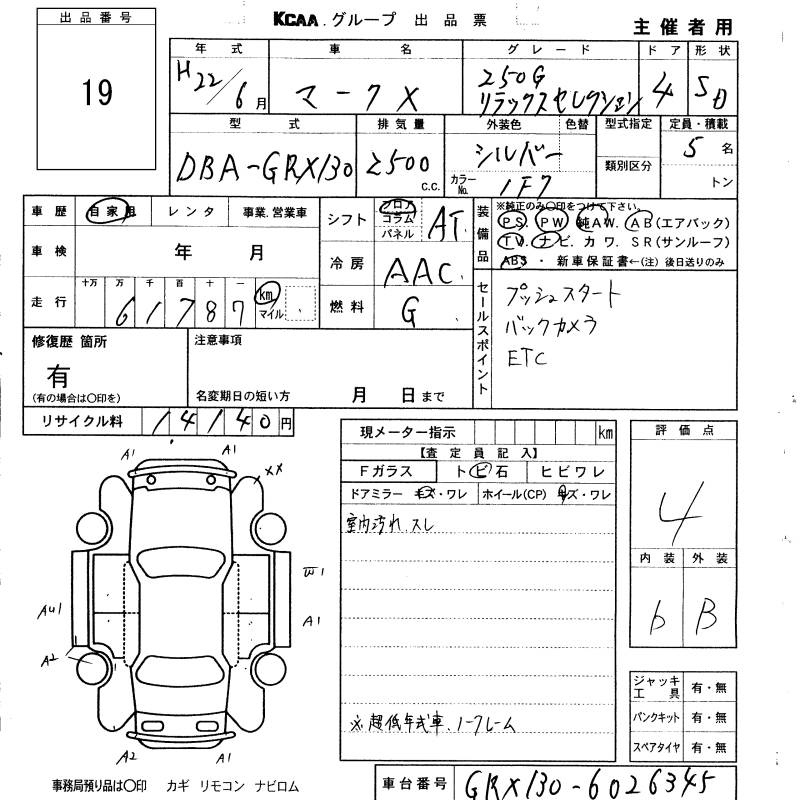 出品番号
19
KCAA グループ 出品票
主催者用
年式 車名 グレード ドア 形状
H22/6月 マークX 250G リラックスセレクション 4 SD
型式 排気量 外装色 色替 型式指定 定員・積載
DBA-GRX130 2500 c.c. シルバー 5名
カラーNo. 1F7 類別区分 トン
車歴 自家用 レンタ 事業.営業車
シフト フロア コラム パネル AT
装備品 ※純正のみ○印をつけて下さい。
PS. PW 純AW. AB(エアバック)
TV. ナビ. カワ. SR(サンルーフ)
ABS ・ 新車保証書←(注) 後日送りのみ
車検 年 月
冷房 AAC
走行 十万 万 千 百 十 一
61787 km マイル
燃料 G
セールスポイント
プッシュスタート
バックカメラ
ETC
修復歴 箇所
有
(有の場合は○印を)
注意事項
名変期日の短い方 月 日まで
リサイクル料 14140円
現メーター指示 km
【査定員記入】
Fガラス トビ石 ヒビワレ
ドアミラー キズ・ワレ ホイール(CP) キズ・ワレ
室内汚れ.スレ
※超低年式車.ノークレーム
評価点
4
内装 外装
b B
A1 A1
XX
W1
AU1 A1
A2
A2 A1
ジャッキ工具 有・無
パンクキット 有・無
スペアタイヤ 有・無
事務局預り品は○印 カギ リモコン ナビロム
車台番号 GRX130-6026345